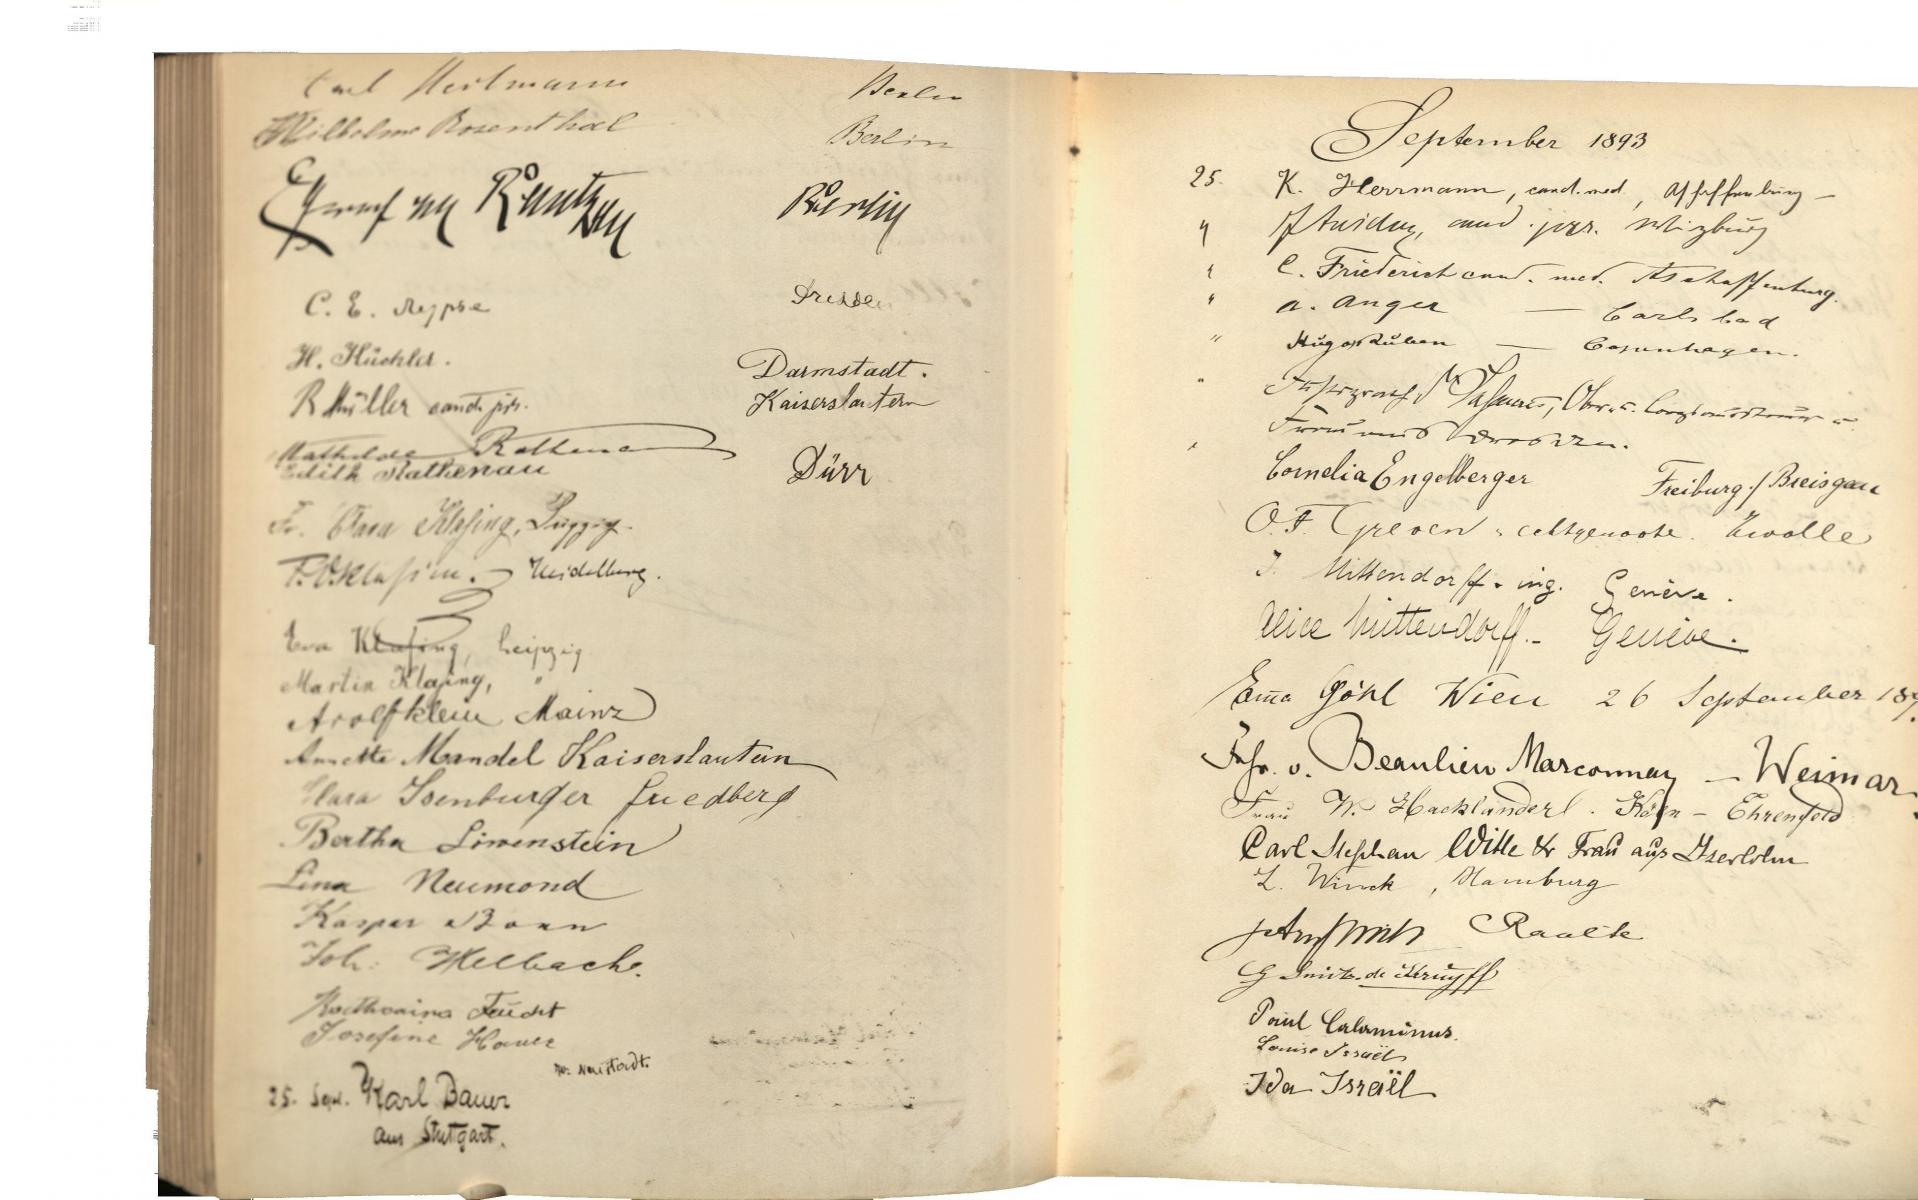 Carl Heilmann Berlin
Wilhelmine Rosenthal Berlin
Berlin
C. E. Dresden
H. Küchler. Darmstadt.
R Müller cand. jur. Kaiserslautern
Mathilde Rathenau
Edith Rathenau Dürr
Fr. Clara Klasing, Leipzig.
F. Klasing. Heidelberg.
Eva Klasing, Leipzig
Martin Klasing, "
Adolf Klein Mainz
Annette Mandel Kaiserslautern
Clara Isenburger Friedberg
Bertha Löwenstein
Lina Neumond
Kaspar Bonn
Joh. Helbach.
Katharina Feucht
Josefine Hauer
w. Neustadt.
25. Sept. Karl Bauer
aus Stuttgart.
September 1893
25. K. Herrmann, cand. med., Aschaffenburg –
" cand. jur. Würzburg
" C. Friederich cand. med. Aschaffenburg.
" A. Anger — Carlsbad
" Hugo Ruben — Copenhagen.
"
Frau aus Dresden.
Cornelia Engelberger Freiburg i/Breisgau
O. F. Greven & echtgenoote. Zwolle
J. Mittendorff. ing. Genève.
Alice Mittendorff. – Genève.
Ema Göhl Wien 26 September 189
Frhr. v. Beaulieu Marconnay – Weimar
Frau W. Hackländer. Köln – Ehrenfeld
Carl Stephan Witte & Frau aus Iserlohn
L. Winck, Hamburg
Raalte
G Smits de Kruyff
Paul Calaminus.
Louise Israël
Ida Israël